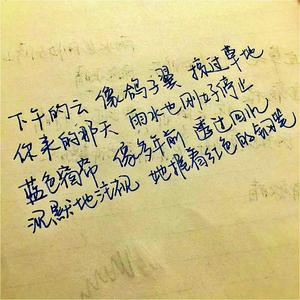 下午的云 像鸽子翼 掠过草地
你来的那天 雨水也刚好停止
蓝色窗帘 像多年前 透过回忆
沉默地注视 着红色的铅笔